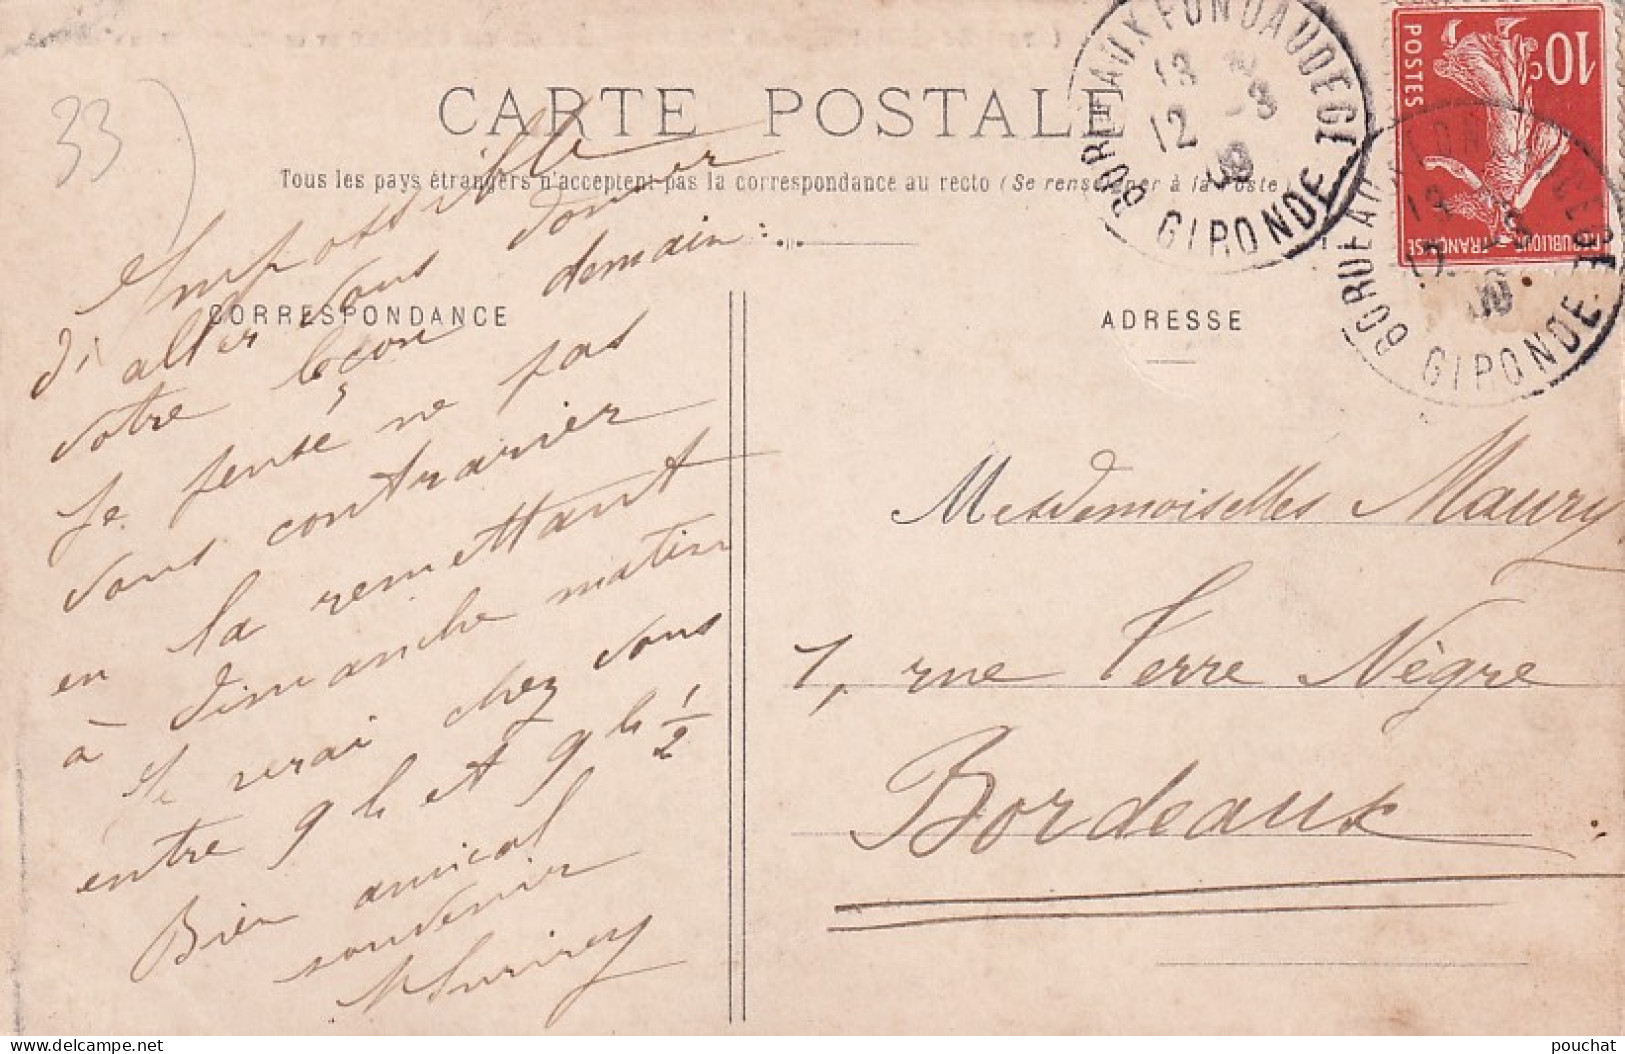 CARTE POSTALE
Tous les pays étrangers n'acceptent pas la correspondance au recto (Se renseigner à la Poste)
CORRESPONDANCE
Impossible
d'aller vous donner
votre leçon demain :
Je pense ne pas
vous contrarier
en la remettant
à dimanche matin
Je serai chez vous
entre 9 h et 9 h 1/2
Bien amical
souvenir
ADRESSE
Mesdemoiselles Maury
1, rue Terre Nègre
Bordeaux
10c
POSTES
REPUBLIQUE FRANÇAISE
BORDEAUX FONDAUDEGE
GIRONDE
12
09
BORDEAUX
GIRONDE
33
pouchat